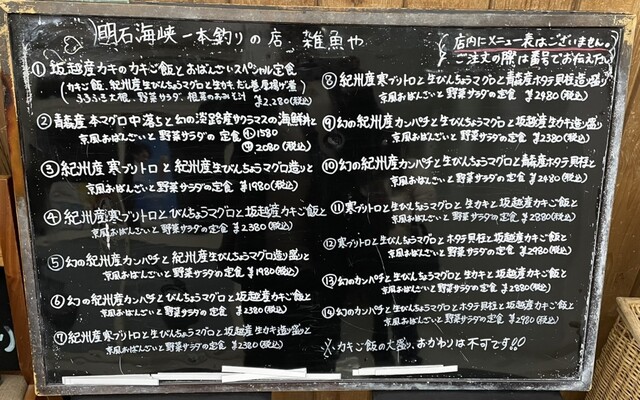 明石海峡一本釣りの店 雑魚や
店内にメニュー表はございません。
ご注文の際は番号でお伝え下さい
① 坂越産カキのカキご飯とおばんざいスペシャル定食
(カキご飯、紀州産生びんちょうマグロと生カキ、だし巻
ふろふき大根、野菜サラダ、根菜のおみそ汁 ¥2,280(税込)
② 青森産本マグロ中落ちと幻の淡路産サクラマスの海鮮丼と
京風おばんざいと野菜サラダの定食 小1580
大2080(税込)
③ 紀州産寒ブリトロと紀州産生びんちょうマグロ造りと
京風おばんざいと野菜サラダの定食 ¥1980(税込)
④ 紀州産寒ブリトロとびんちょうマグロと坂越産カキご飯と
京風おばんざいと野菜サラダの定食 ¥2380(税込)
⑤ 幻の紀州産カンパチと紀州産生びんちょうマグロ造り盛りと
京風おばんざいと野菜サラダの定食 ¥1980(税込)
⑥ 幻の紀州産カンパチとびんちょうマグロと坂越産カキご飯と
京風おばんざいと野菜サラダの定食 ¥2380(税込)
⑦ 紀州産寒ブリトロと生びんちょうマグロと坂越産生カキ造り盛りと
京風おばんざいと野菜サラダの定食 ¥2380(税込)
⑧ 紀州産寒ブリトロと生びんちょうマグロと青森産ホタテ貝柱造り盛り
京風おばんざいと野菜サラダの定食 ¥2480(税込)
⑨ 幻の紀州産カンパチと生びんちょうマグロと坂越産生カキ造り盛り
京風おばんざいと野菜サラダの定食 ¥2380(税込)
⑩ 幻の紀州産カンパチと生びんちょうマグロと青森産ホタテ貝柱と
京風おばんざいと野菜サラダの定食 ¥2480(税込)
⑪ 寒ブリトロと生びんちょうマグロと生カキと坂越産カキご飯と
京風おばんざいと野菜サラダの定食 ¥2880(税込)
⑫ 寒ブリトロと生びんちょうマグロとホタテ貝柱と坂越産カキご飯と
京風おばんざいと野菜サラダの定食 ¥2980(税込)
⑬ 幻のカンパチと生びんちょうマグロと生カキと坂越産カキご飯と
京風おばんざいと野菜サラダの定食 ¥2880(税込)
⑭ 幻のカンパチと生びんちょうマグロとホタテ貝柱と坂越産カキご飯と
京風おばんざいと野菜サラダの定食 ¥2980(税込)
※カキご飯の大盛り、おかわりは不可です!!